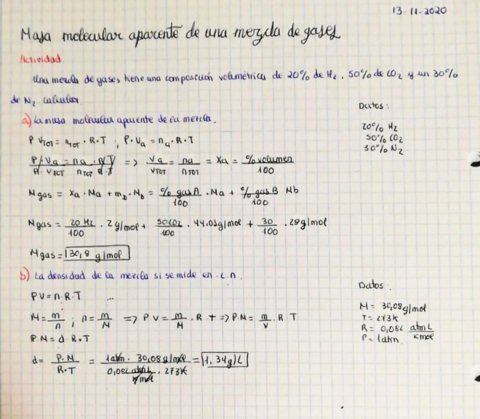 13-11-2020
Masa molecular aparente de una mezcla de gases
Actividad
Una mezcla de gases tiene una composición volumétrica de 20% de H2, 50% de CO2 y un 30%
de N2 calcular
a) La masa molecular aparente de la mezcla.
Datos:
20% H2
50% CO2
30% N2
P VTOT = nTOT · R · T , P · Va = na · R · T
P · Va = na · R T / P · VTOT nTOT R T => Va / VTOT = na / nTOT = Xa = % volumen / 100
Mgas = Xa · Ma + mb · Mb = % gas A / 100 · Ma + % gas B / 100 Mb
Mgas = 20 H2 / 100 · 2 g/mol + 50 CO2 / 100 · 44,01 g/mol + 30 / 100 · 28 g/mol
Mgas = 30,8 g/mol
b) La densidad de la mezcla si se mide en c.n.
Datos:
PV = n · R · T ...
M = 30,08 g/mol
T = 273 K
R = 0,082 atm L / K mol
P = 1 atm
M = m / n ; n = m / M => P V = m / M · R T => P · M = m / V · R T
P · M = d · R · T
d = P · M / R · T = 1 atm · 30,08 g/mol / 0,082 atm L / K mol · 273 K = 1,34 g/L